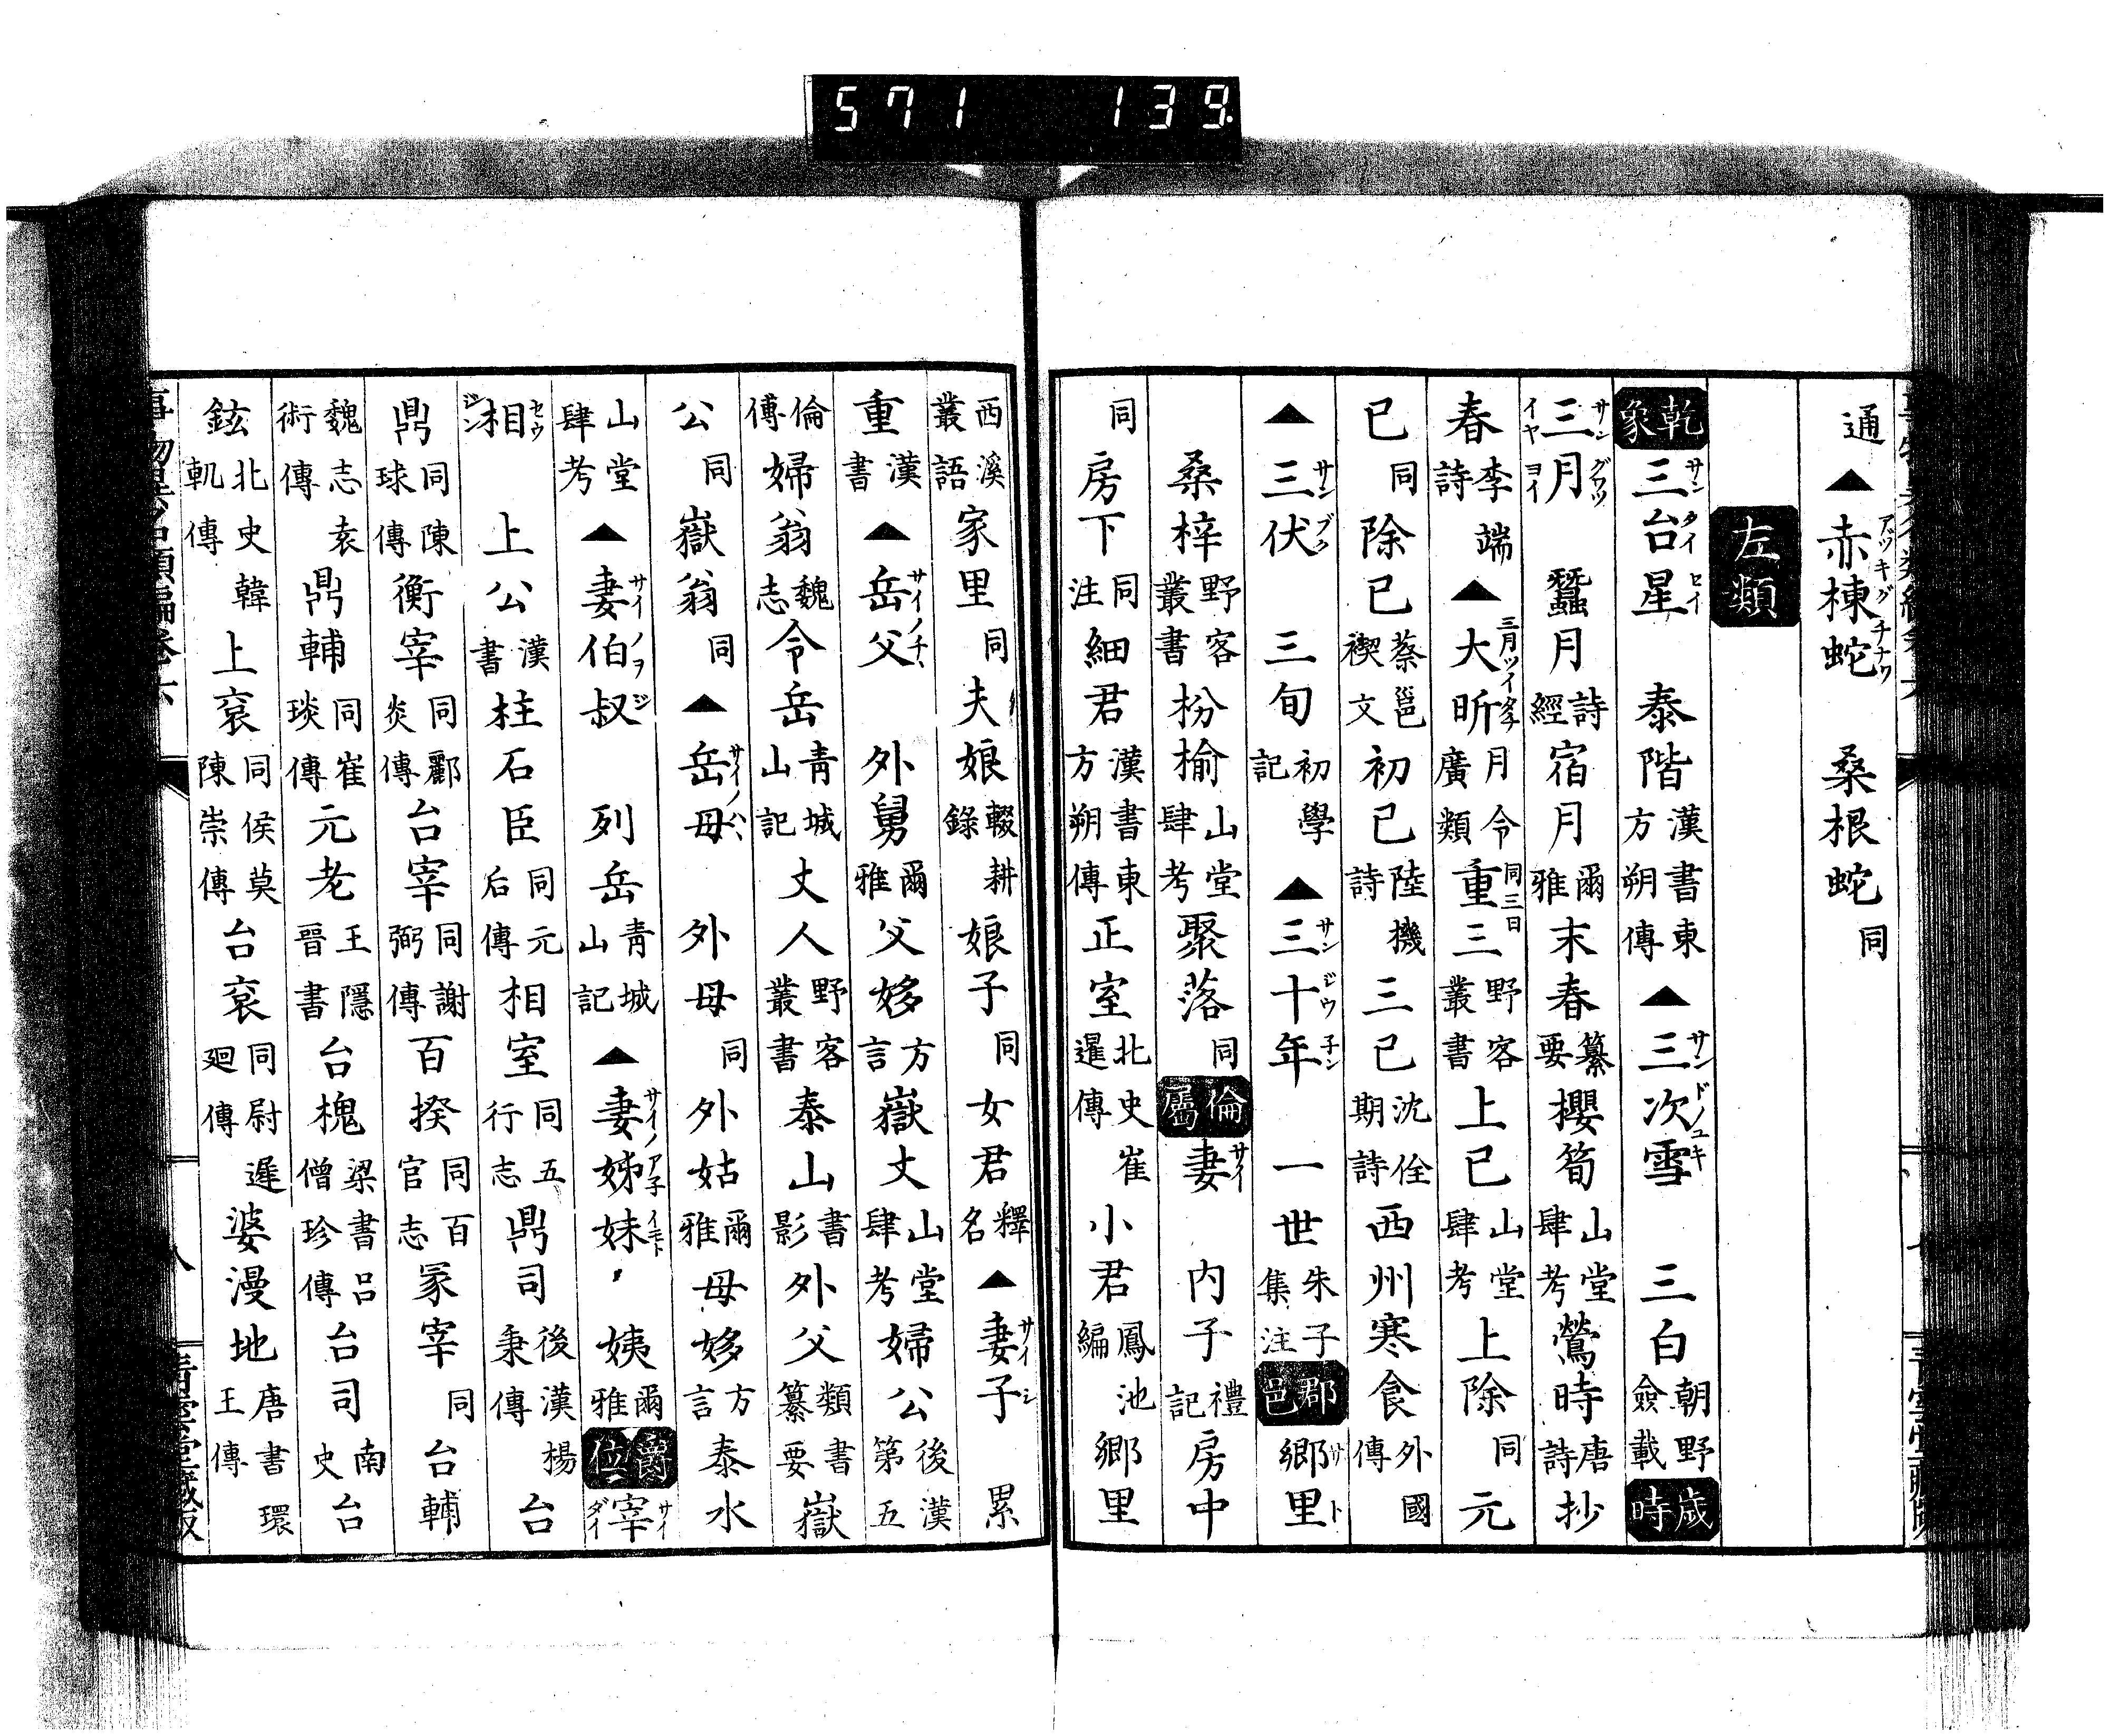 571 139.
通▲赤楝蛇アツキグチナワ 桑根蛇同
左類
乾象 三台星サンタイセイ 泰階漢書東方朔傳▲三次雪サンドノユキ 三白朝野僉載 歳時
三月サングワツイヤヨイ 蠶月詩經宿月爾雅末春纂要櫻筍山堂肆考鶯時唐詩抄
春李端詩▲大昕三月ツイタチ月令廣類重三同三日野客叢書上巳山堂肆考上除同元
巳同除巳蔡邕禊文初巳陸機詩三巳沈佺期詩西州寒食外國傳
▲三伏サンブク 三旬初學記▲三十年サンジウ子ン 一世朱子集注 郡邑 郷里サト
桑梓野客叢書枌榆山堂肆考聚落同 倫屬 妻サイ 内子禮記房中
同房下同注細君漢書東方朔傳正室北史崔暹傳小君鳳池編郷里
西溪叢語家里同夫娘輟耕錄娘子同女君釋名▲妻子サイシ 累
重漢書▲岳父サイノチヽ 外舅爾雅父姼方言嶽丈山堂肆考婦公後漢第五
倫傳婦翁魏志令岳青城山記丈人野客叢書泰山書影外父類書纂要嶽
公同嶽翁同▲岳母サイノハヽ 外母同外姑爾雅母姼方言泰水
山堂肆考▲妻伯叔サイノヲジ 列岳青城山記▲妻姊妹サイノア子イモト 姨爾雅 爵位 宰サイダイ
相セウジン 上公漢書柱石臣同元后傳相室同五行志鼎司後漢楊秉傳台
鼎同陳球傳衡宰同酈炎傳台宰同謝弼傳百揆同百官志冢宰同台輔
魏志袁術傳鼎輔同崔琰傳元老王隱晉書台槐梁書呂僧珍傳台司南史台
鉉北史韓軌傳上袞同侯莫陳崇傳台袞同尉遲迥傳婆漫地唐書環王傳
八